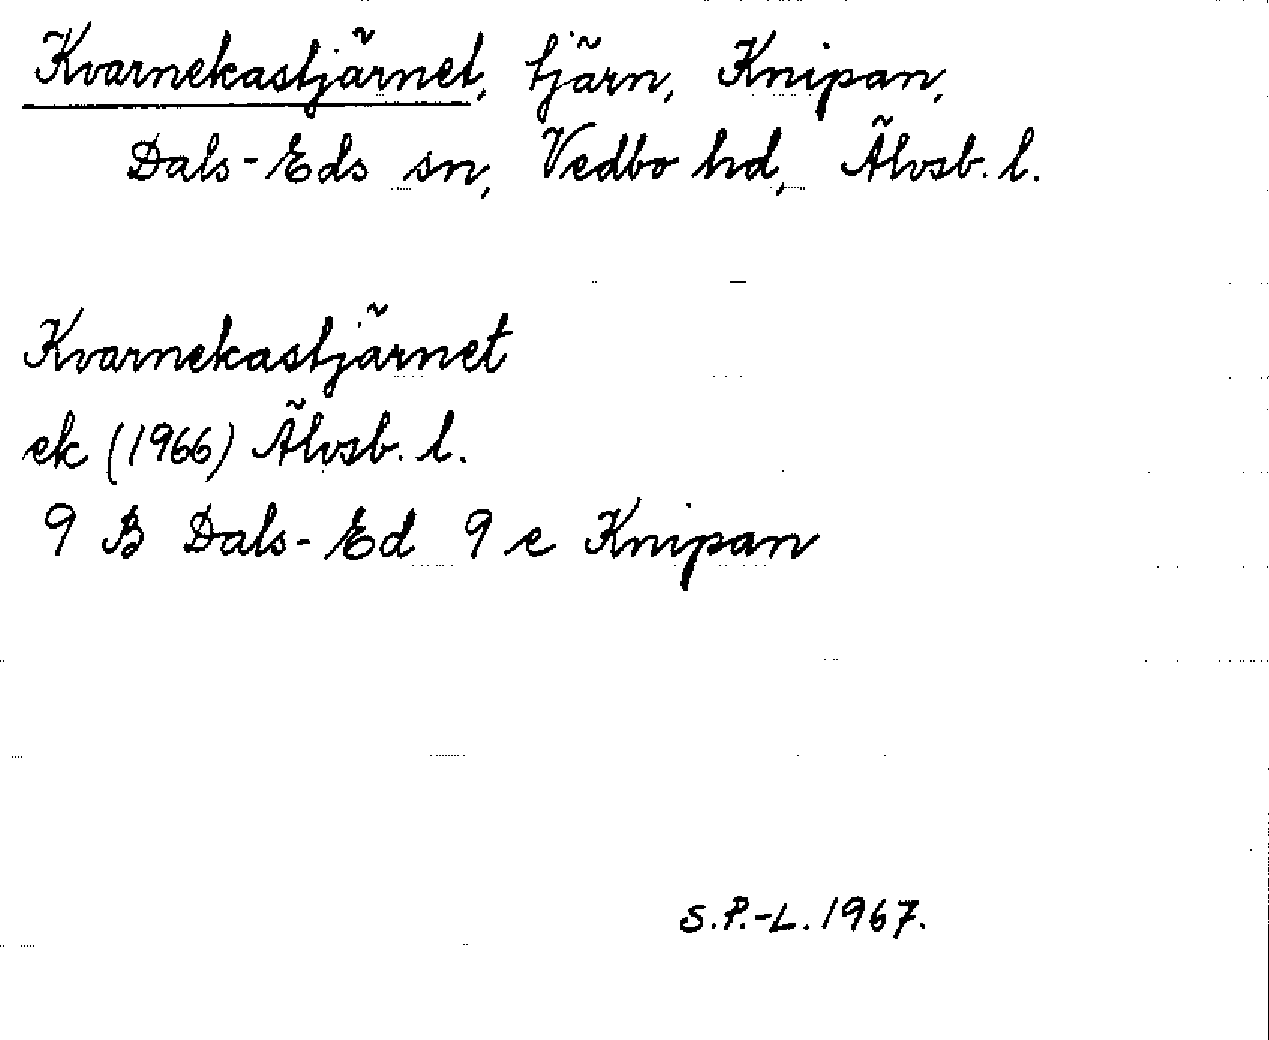 Kvarnekastjärnet, tjärn, Knipan,
Dals-Eds sn, Vedbo hd, Älvsb. l.
Kvarnekastjärnet
ek (1966) Älvsb. l.
9 B Dals-Ed 9 e Knipan
S.P.-L. 1967.